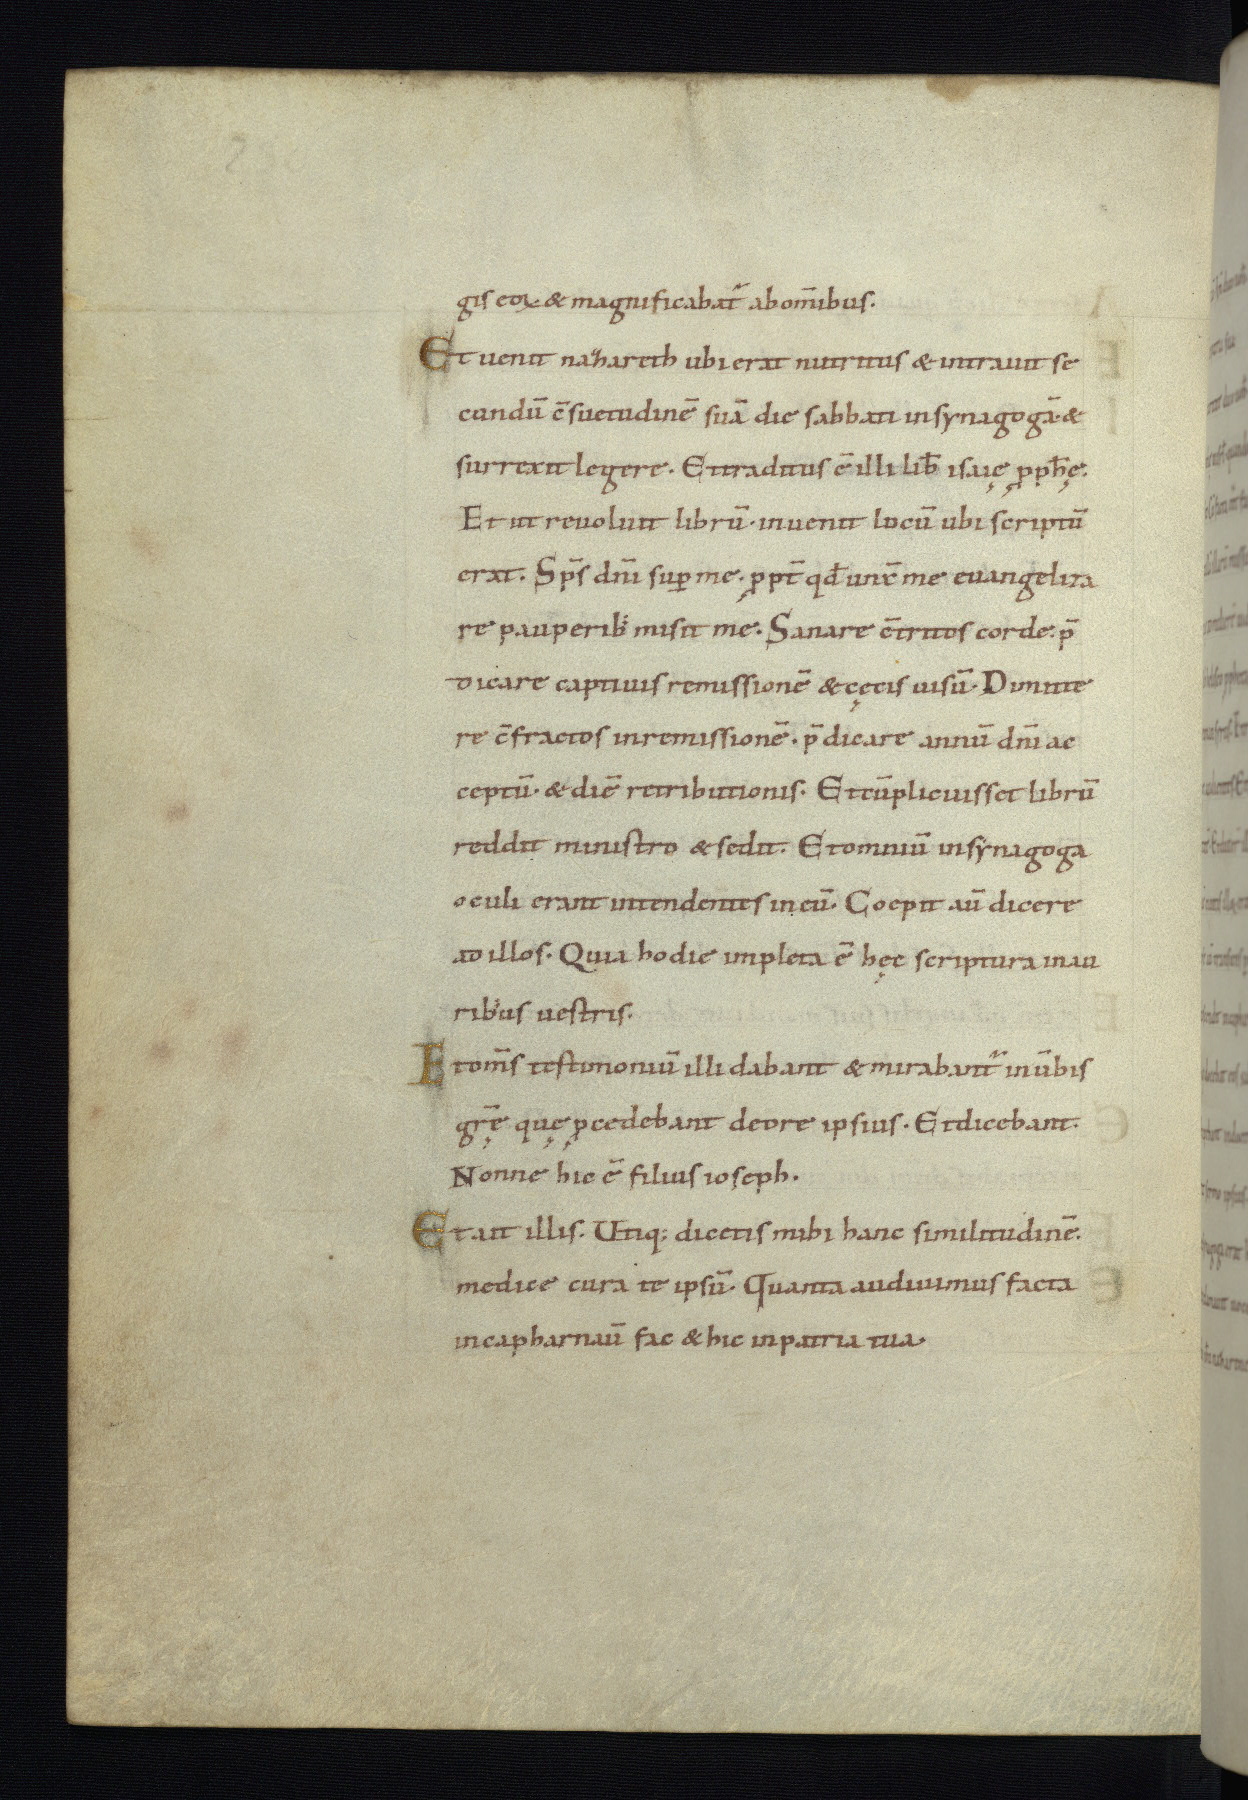 gis eoꝝ & magnificabat᷑ ab om̄ibus.
Et uenit nazhareth ubi erat nutritus & intrauit se
cundū c̄suetudinē suā die sabbati in synagogā. &
surrexit legere. Et traditus ē illi lib̄ isaię ꝓph̄ę.
Et ut reuoluit librū. inuenit locū ubi scriptū
erat. Sp̄s dn̄i suꝑ me. ꝓpt̄ qd̄ unx̄ me euangeliza
re pauperib; misit me. Sanare c̄tritos corde. p̄
dicare captiuis remissionē & cęcis uisū. Dimitte
re c̄fractos in remissionē. p̄dicare annū dn̄i ac
ceptū. & diē retributionis. Et cū plicuisset librū
reddit ministro & sedit. Et omniū in synagoga
oculi erant intendentes in eū. Coepit aū dicere
ad illos. Quia hodie impleta ē hęc scriptura in au
ribus uestris.
Et om̄s testimoniū illi dabant & mirabant᷑ in ūbis
gr̄ę quę ꝓcedebant de ore ipsius. Et dicebant.
Nonne hic ē filius ioseph.
Et ait illis. Utiq; dicetis mihi hanc similitudinē.
medice cura te ipsū. Quanta audiuimus facta
in capharnaū fac & hic in patria tua.